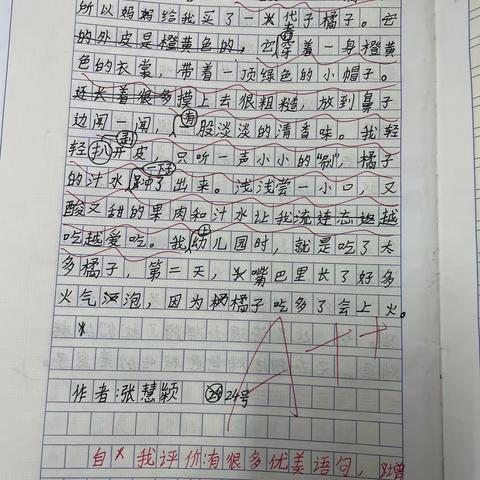 所以妈妈给我买了一代子橘子。它
的外皮是橙黄色的，它穿着一身橙黄
色的衣裳，带着一顶绿色的小帽子。
还长着很多摸上去很粗糙，放到鼻子
边闻一闻，有股淡淡的清香味。我轻
轻剥开皮，只听一声小小的"嘭"，橘子
的汁水一下子冲了出来。浅浅尝一小口，又
酸又甜的果肉和汁水让我流连忘返越
吃越爱吃。我上幼儿园时，就是吃了太
多橘子，第二天，嘴巴里长了好多
火气泡，因为橘子吃多了会上火。
A++
作者:张慧颖 24号
自我评价:有很多优美语句，